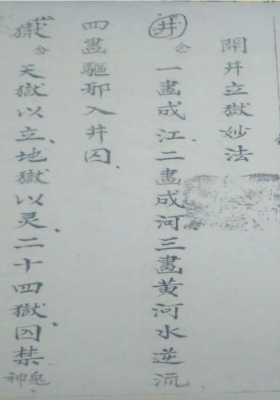 開井立獄妙法
井 念 一畫成江二畫成河三畫黄河水逆流
四畫驅邪入井囚
獄 念 天獄以立地獄以灵二十四獄囚禁鬼神